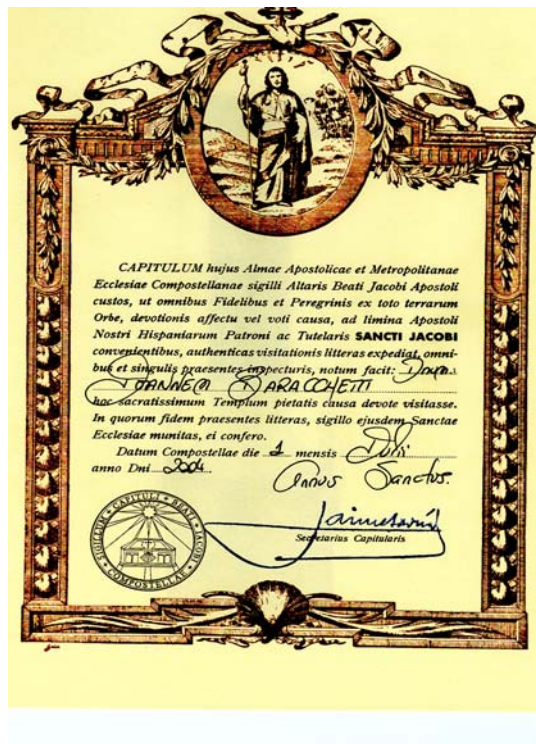 CAPITULUM hujus Almae Apostolicae et Metropolitanae
Ecclesiae Compostellanae sigilli Altaris Beati Jacobi Apostoli
custos, ut omnibus Fidelibus et Peregrinis ex toto terrarum
Orbe, devotionis affectu vel voti causa, ad limina Apostoli
Nostri Hispaniarum Patroni ac Tutelaris SANCTI JACOBI
convenientibus, authenticas visitationis litteras expediat, omni-
bus et singulis praesentes inspecturis, notum facit:
JOANNEM BARACCHETTI
hoc sacratissimum Templum pietatis causa devote visitasse.
In quorum fidem praesentes litteras, sigillo ejusdem Sanctae
Ecclesiae munitas, ei confero.
Datum Compostellae die 1 mensis Julii
anno Dni 2004.
Annus Sanctus.
Secretarius Capitularis
SIGILLUM CAPITULI BEATI JACOBI COMPOSTELLAE